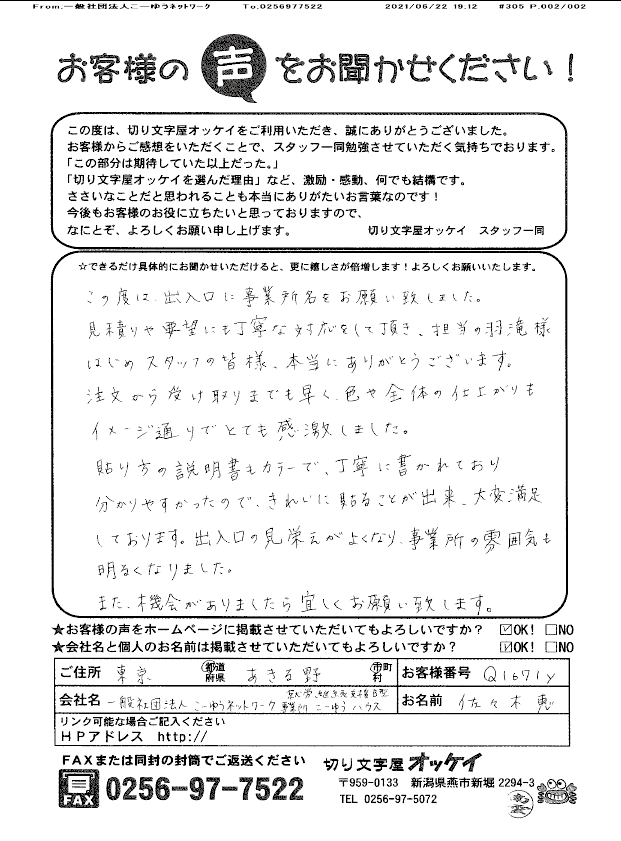 From:一般社団法人こーゆうネットワーク To:0256977522 2021/06/22 19:12 #305 P.002/002
お客様の声をお聞かせください！
この度は、切り文字屋オッケイをご利用いただき、誠にありがとうございました。
お客様からご感想をいただくことで、スタッフ一同勉強させていただく気持ちでおります。
「この部分は期待していた以上だった。」
「切り文字屋オッケイを選んだ理由」など、激励・感動、何でも結構です。
ささいなことだと思われることも本当にありがたいお言葉なのです！
今後もお客様のお役に立ちたいと思っておりますので、
なにとぞ、よろしくお願い申し上げます。 切り文字屋オッケイ スタッフ一同
☆できるだけ具体的にお聞かせいただけると、更に嬉しさが倍増します！よろしくお願いいたします。
この度は、出入口に事業所名をお願い致しました。
見積りや要望にも丁寧な対応をして頂き、担当の羽滝様
はじめスタッフの皆様、本当にありがとうございます。
注文から受け取りまでも早く、色や全体の仕上がりも
イメージ通りでとても感激しました。
貼り方の説明書もカラーで、丁寧に書かれており
分かりやすかったので、きれいに貼ることが出来、大変満足
しております。出入口の見栄えがよくなり、事業所の雰囲気も
明るくなりました。
また、機会がありましたら宜しくお願い致します。
★お客様の声をホームページに掲載させていただいてもよろしいですか？ ☑OK! □NO
★会社名と個人のお名前は掲載させていただいてもよろしいですか？ ☑OK! □NO
ご住所 東京 都道府県 あきる野 市町村 お客様番号 Q1671y
会社名 一般社団法人 こーゆうネットワーク 就労継続支援B型事業所 こーゆうハウス お名前 佐々木 恵
リンク可能な場合ご記入ください
ＨＰアドレス http://
FAXまたは同封の封筒でご返送ください
FAX 0256-97-7522
切り文字屋オッケイ
〒959-0133 新潟県燕市新堀 2294-3
TEL 0256-97-5072